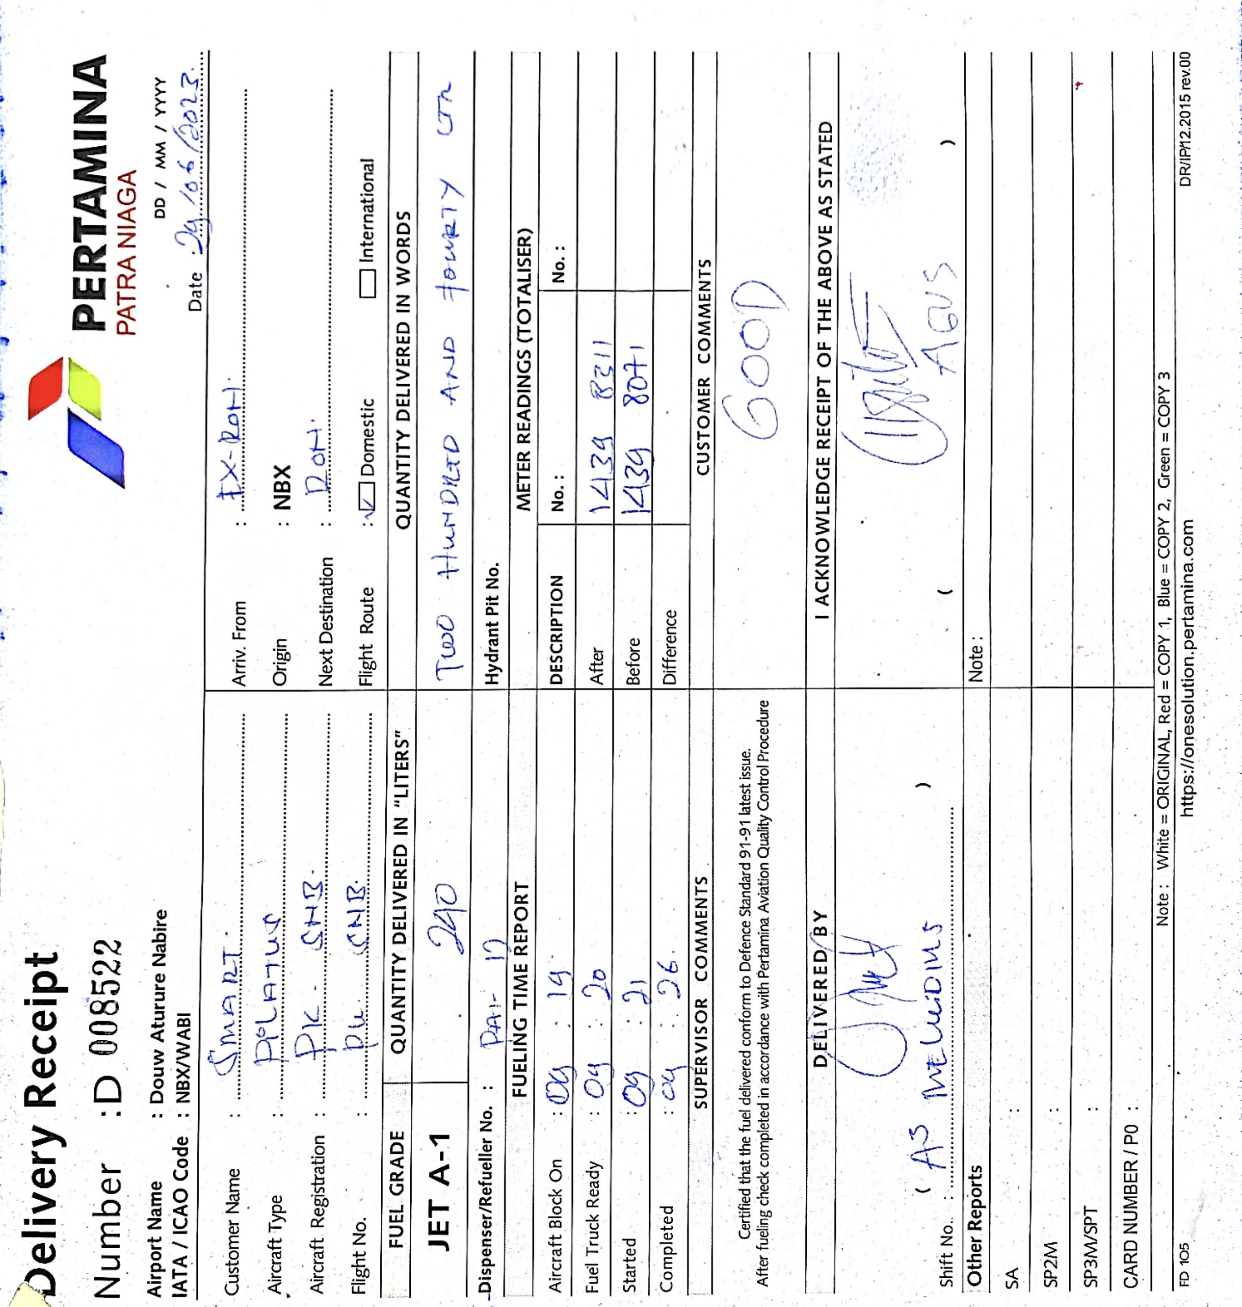 Delivery Receipt
Number : D 008522
PERTAMINA
PATRA NIAGA
Airport Name : Douw Aturure Nabire
IATA / ICAO Code : NBX/WABI
DD / MM / YYYY
Date : 29/06/2023.
Customer Name : SMART.
Aircraft Type : PILATUS
Aircraft Registration : PK. SNB.
Flight No. : PK SNB.
Arriv. From : EX-DOH.
Origin : NBX
Next Destination : DOH.
Flight Route : Domestic International
FUEL GRADE QUANTITY DELIVERED IN "LITERS" QUANTITY DELIVERED IN WORDS
JET A-1 240 TWO HUNDRED AND FOURTY LTR
Dispenser/Refueller No. : PAI- 12 Hydrant Pit No.
FUELING TIME REPORT METER READINGS (TOTALISER)
Aircraft Block On : 09 : 19 DESCRIPTION No. : No. :
Fuel Truck Ready : 09 : 20 After 1439 8311
Started : 09 : 21 Before 1439 8071
Completed : 09 : 26. Difference
SUPERVISOR COMMENTS CUSTOMER COMMENTS
GOOD
Certified that the fuel delivered conform to Defence Standard 91-91 latest issue.
After fueling check completed in accordance with Pertamina Aviation Quality Control Procedure
DELIVERED BY I ACKNOWLEDGE RECEIPT OF THE ABOVE AS STATED
( AS ) ( AGUS )
Shift No. :
Other Reports Note :
SA :
SP2M :
SP3M/SPT :
CARD NUMBER / PO :
Note : White = ORIGINAL, Red = COPY 1, Blue = COPY 2, Green = COPY 3
FD 105 https://onesolution.pertamina.com DR/IP/12.2015 rev.00